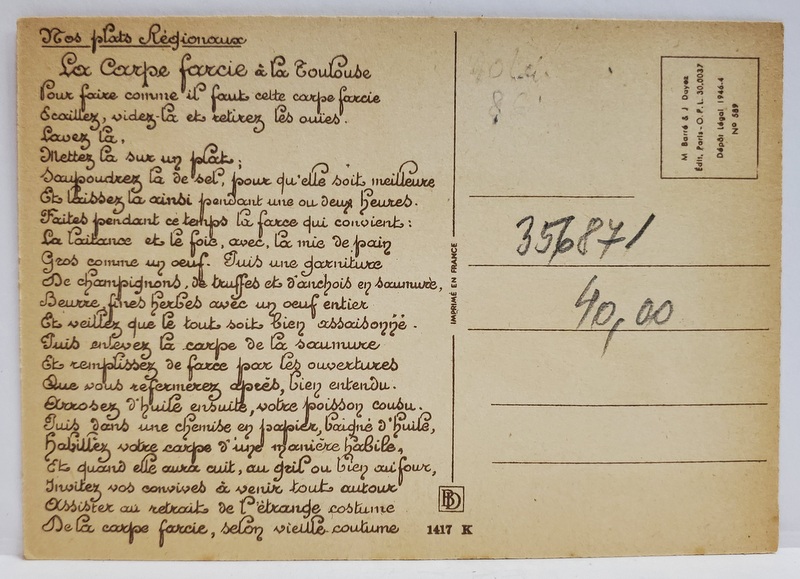 Nos plats Régionaux
La Carpe farcie à la Toulouse
Pour faire comme il faut cette carpe farcie
Ecaillez, videz-la et retirez les ouïes.
Lavez la,
Mettez la sur un plat;
Saupoudrez la de sel, pour qu'elle soit meilleure
Et laissez la ainsi pendant une ou deux heures.
Faites pendant ce temps la farce qui convient:
La laitance et le foie, avec, la mie de pain
Gros comme un oeuf. Puis une garniture
De champignons, de truffes et d'anchois en saumure,
Beurre, fines herbes avec un oeuf entier
Et veillez que le tout soit bien assaisonné.
Puis enlevez la carpe de la saumure
Et remplissez de farce par les ouvertures
Que vous refermerez après, bien entendu.
Arrosez d'huile ensuite, votre poisson cousu.
Puis dans une chemise en papier, baigné d'huile,
Habillez votre carpe d'une manière habile,
Et quand elle aura cuit, au gril ou bien au four,
Invitez vos convives à venir tout autour
Assister au retrait de l'étrange costume
De la carpe farcie, selon vieille coutume
1417 K
BD
IMPRIMÉ EN FRANCE
M. Barré & J. Dayez
Édit. Paris - O.P.L. 30.0037
Dépôt Légal 1946-4
N° 589
356871
40,00